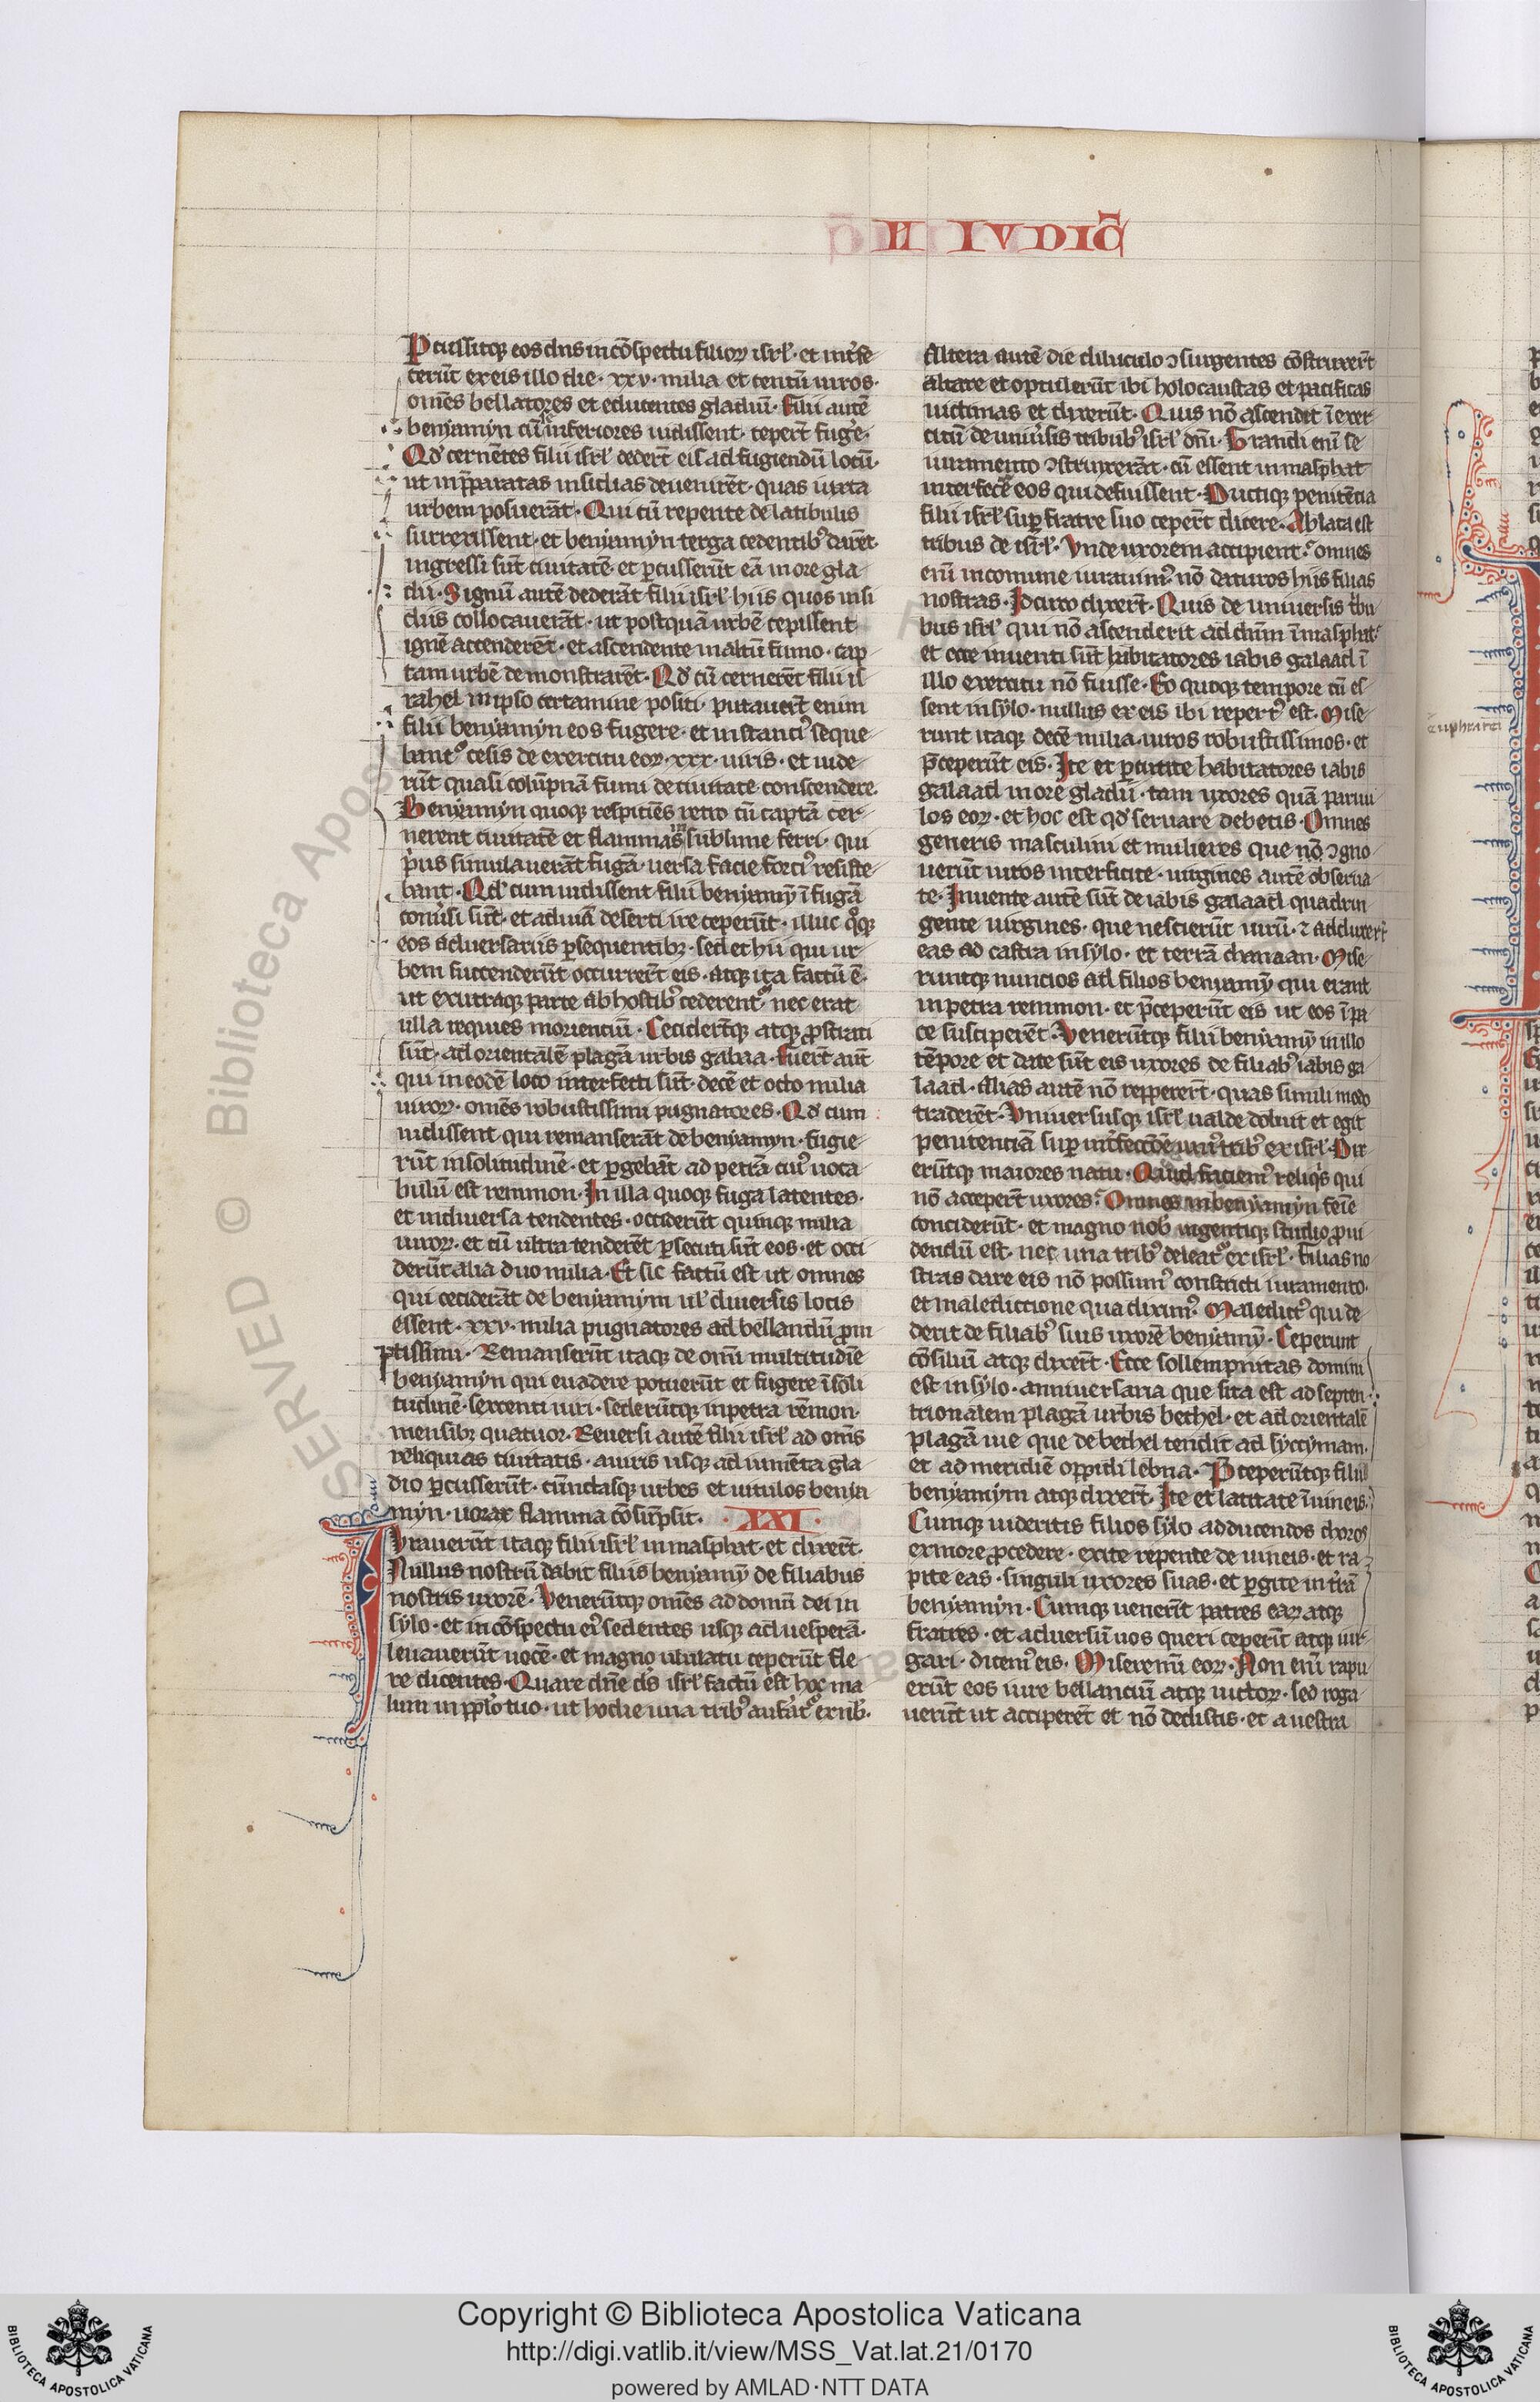 II IVDIC̄
Pcussitqꝫ eos dn̄s in cōspectu filioꝝ isrł · et int̾fe
cerūt ex eis illo die · xxv · milia et centū uiros ·
om̄es bellatores et educentes gladiū · Filii autē
beniamyn cū se inferiores uidissent · ceper̄t fug̾e ·
Qđ cernētes filii isrł deder̄t eis ad fugiendū locū ·
ut in p̄paratas insidias deuenirēt · quas iuxta
urbem posuerāt · Qui cū repente de latibulis
surrexissent · et beniamyn terga cedentibꝰ darēt ·
ingressi sūt ciuitatē et ꝑcusserūt eā in ore gla
dii · Signū autē dederāt filii isrł hiis quos insi
diis collocauerāt · ut postquā urbē cepissent
ignē accenderēt · et ascendente in altū fumo · cap
tam urbē demonstrarēt · Qđ cū cernerēt filii is
rahel in ipso certamine positi · putauer̄t enim
filii beniamyn eos fugere · et instanciꝰ seque
bant᷑ cesis de exercitu eoꝝ · xxx · uiris · et uide
rūt quasi colūpnā fumi de ciuitate conscendere ·
Beniamyn quoqꝫ respiciēs retro cū captā cer
nerent ciuitatē et flammas in sublime ferri · qui
p̾us simulauerāt fugā · uersa facie forciꝰ resiste
bant · Qđ cum uidissent filii beniamȳ ī fugā
conu̾si sūt · et ad uiā deserti ire ceperūt · illuc q̊qꝫ
eos aduersariis ꝑsequentibꝫ · sed et hii qui ur
bem succenderūt occurrer̄t eis · atqꝫ ita factū ē ·
ut ex utraqꝫ parte ab hostibꝰ cederent᷑ · nec erat
ulla requies morienciū · Ceciderūtqꝫ atqꝫ ꝓstrati
sūt · ad orientalē plagā urbis gabaa · Fuer̄t aut̄
qui in eodē loco interfecti sūt · decē et octo milia
uiroꝝ · om̄es robustissimi pugnatores · Qđ cum
uidissent qui remanserāt de beniamyn · fugie
rūt in solitudinē · et ꝑgebāt ad petrā cuiꝰ uoca
bulū est remmon · In illa quoqꝫ fuga latentes ·
et in diuersa tendentes · occiderūt quinqꝫ milia
uiroꝝ · et cū ultra tenderēt ꝑsecuti sūt eos · et occi
derūt alia duo milia · Et sic factū est ut omnes
qui ceciderāt de beniamym uł diuersis locis
essent · xxv · milia pugnatores ad bellandū ꝓm
ptissimi · Remanserūt itaqꝫ de om̄i multitudīe
beniamyn qui euadere potuerūt et fugere ī soli
tudinē · sexcenti uiri · sederūtqꝫ in petra rēmon ·
mensibꝫ quatuor · Reuersi autē filii isrł ad om̄s
reliquias ciuitatis · a uiris usqꝫ ad iumēta gla
dio ꝑcusserūt · cūnctasqꝫ urbes et uiculos benia
myn · uorax flamma cōsūpsit · · XXI ·
Iurauerūt itaqꝫ filii isrł in masphat · et dixer̄t ·
Nullus nostrū dabit filiis beniamȳ de filiabus
nostris uxorē · Venerūtqꝫ om̄es ad domū dei in
sylo · et in cōspectu eiꝰ sedentes usqꝫ ad uesperā ·
leuauerūt uocē · et magno ululatu ceperūt fle
re dicentes · Quare dn̄e ds̄ isrł factū est hoc ma
lum in ppło tuo · ut hodie una tribꝰ auferat᷑ ex nob̾ ·
Altera autē die diluculo ↄsurgentes cōstruxer̄t
altare et optulerūt ibi holocaustas et pacificas
uictimas et dixerūt · Quis nō ascendit ī exer
citū de uniu̾sis tribubꝰ isrł dn̄i · Grandi enī se
iuramento ↄstruxerāt · cū essent in masphat
interfice̾ eos qui defuissent · Ductiqꝫ penitēcia
filii isrł suꝑ fratre suo ceper̄t dicere · Ablata est
tribus de isrł · Vnde uxorem accipient · omnes
enī in comune iurauimꝰ nō daturos hiis filias
nostras · Idcirco dixer̄t · Quis de uniuersis tribu
bus isrł qui nō ascenderit ad dn̄m ī masphat ·
et ecce inuenti sūt habitatores iabis galaad ī
illo exercitu nō fuisse · Eo quoqꝫ tempore cū es
sent in sylo · nullus ex eis ibi repertꝰ est · Mise
runt itaqꝫ decē milia uiros robustissimos · et
p̄ceperūt eis · Ite et ꝑcutite habitatores iabis
galaad in ore gladii · tam uxores quā paruu
los eoꝝ · et hoc est qđ seruare debetis · Omnes
generis masculini et mulieres que nō ↄgno
uerūt uiros interficite · uirgines autē obserua
te · Inuente autē sūt de iabis galaad quadrin
gente uirgines · que nescierūt uirū · ⁊ adduxer̄t
eas ad castra in sylo · et terrā chanaan · Mise
runtqꝫ nuncios ad filios beniamȳ qui erant
in petra remmon · et p̄ceperūt eis ut eos ī pa
ce susciperēt · Venerūtqꝫ filii beniamȳ in illo
tēpore et date sūt eis uxores de filiabꝰ iabis ga
laad · Alias autē nō reppererēt · quas simili modo
traderēt · Vniuersusqꝫ isrł ualde doluit et egit
penitentiā suꝑ int̾feccōe uniꝰ tribꝰ ex isrł · Dix
erūtqꝫ maiores natu · Quid faciemꝰ reliq̾s qui
nō acceper̄t uxores · Omnes in beniamyn feīe
conciderūt · et magno nob̾ ingentiqꝫ studio ꝓui
dendū est · nec una tribꝰ deleat᷑ ex isrł · Filias no
stras dare eis nō possumꝰ constricti iuramento ·
et malediccione qua diximꝰ · Maledictꝰ qui de
derit de filiabꝰ suis uxorē beniamȳ · Ceperunt
cōsiliū atqꝫ dixer̄t · Ecce sollempnitas domini
est in sylo · anniuersaria que sita est ad septen
trionalem plagā urbis bethel · et ad orientalē
plagā uie que de bethel tendit ad syccymam ·
et ad meridiē oppidi lebna · P̄ceperūtqꝫ filiis
beniamym atqꝫ dixer̄t · Ite et latitate ī uineis ·
Cumqꝫ uideritis filios sylo ad ducendos choros
ex more ꝓcedere · exite repente de uineis · et ra
pite eas · singuli uxores suas · et ꝑgite in t̾rā
beniamyn · Cumqꝫ uenerīt patres eaꝝ atqꝫ
fratres · et aduersū uos queri ceperīt atqꝫ iur
gari · dicemꝰ eis · Miseremī eoꝝ · Non enī rapu
erūt eos iure bellanciū atqꝫ uictoꝝ · sed roga
uerūt ut acciperēt et nō dedistis · et a uestra
euphrateī
Copyright © Biblioteca Apostolica Vaticana
http://digi.vatlib.it/view/MSS_Vat.lat.21/0170
powered by AMLAD·NTT DATA
BIBLIOTECA APOSTOLICA VATICANA
BIBLIOTECA APOSTOLICA VATICANA